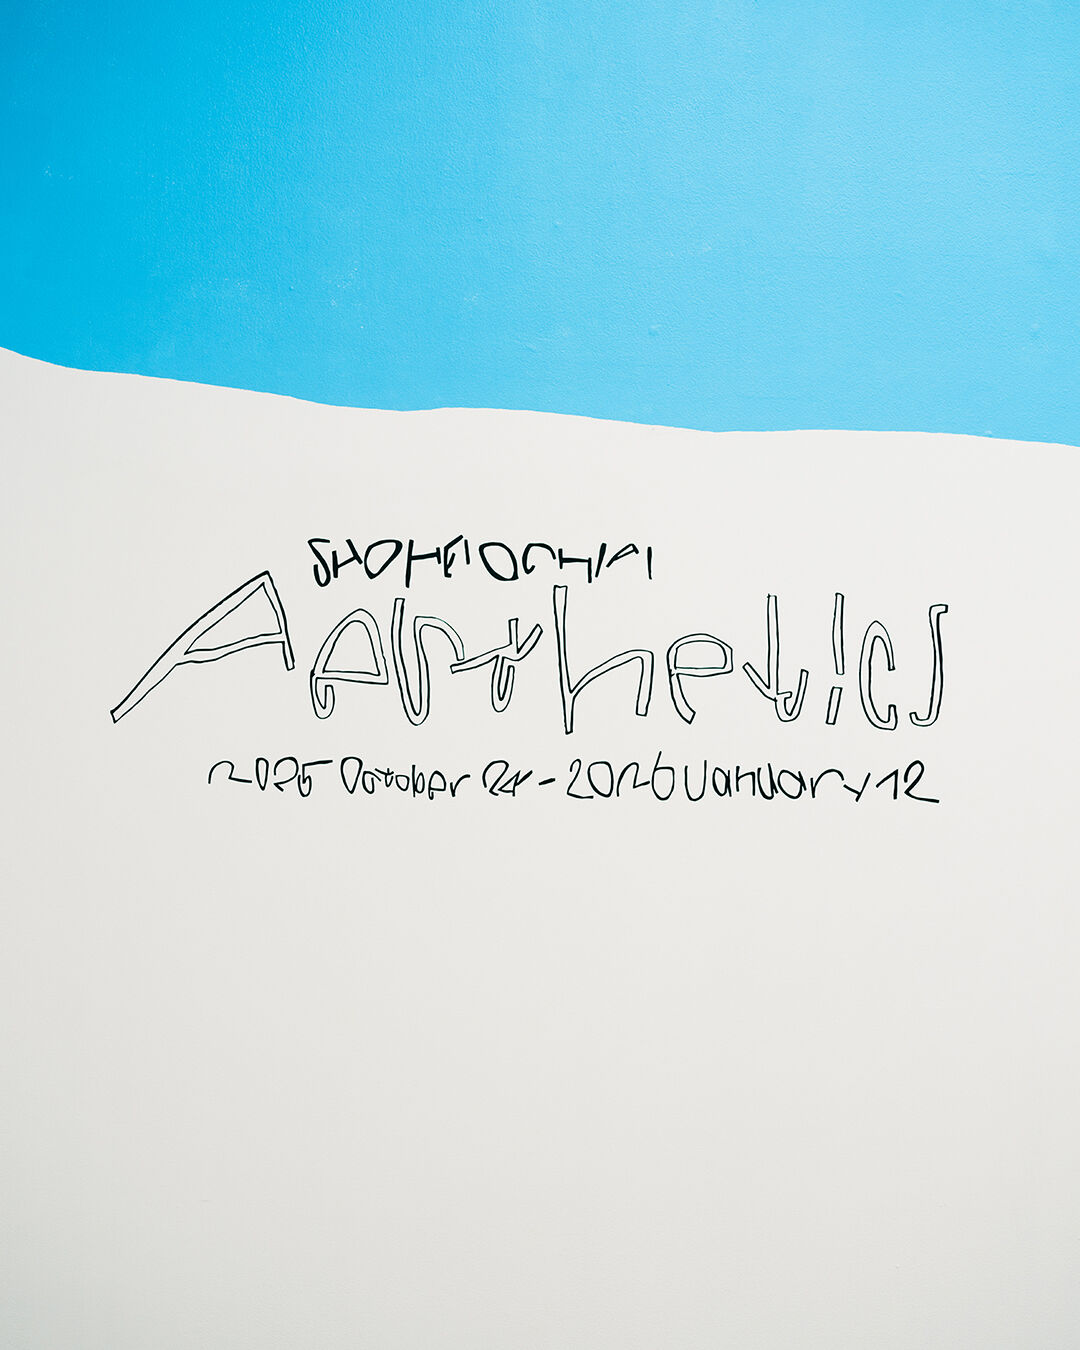 SHOHEI OCHIAI
Aesthetics
2025 October 24 - 2026 January 12